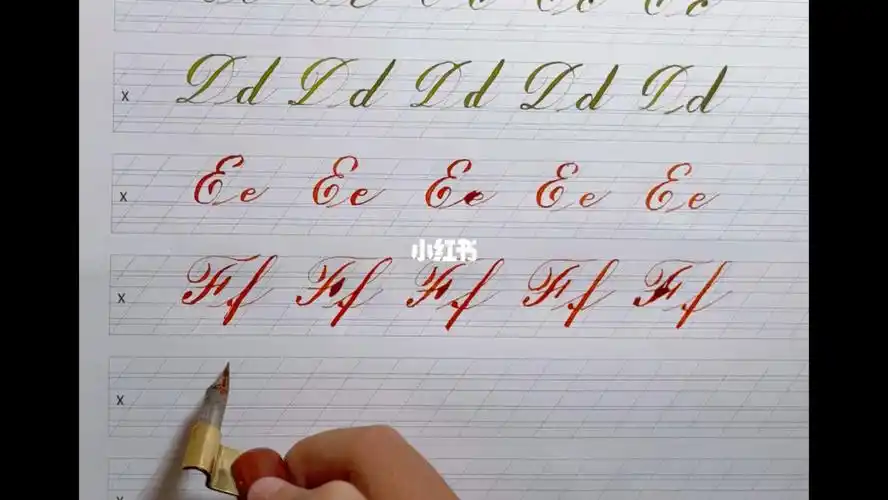 x Dd Dd Dd Dd Dd
x Ee Ee Ee Ee Ee
小红书
x Ff Ff Ff Ff Ff
x
x